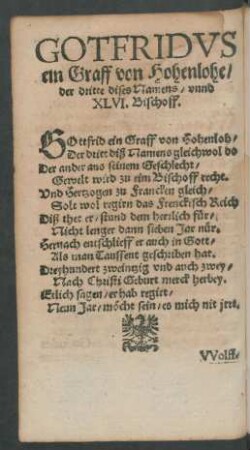 GOTFRIDVS
ein Graff von Hohenlohe/
der dritte dises Namens/ vnnd
XLVI. Bischoff.
GOttfrid ein Graff von Hohenloh/
Der dritt diß Namens gleichwol do
Der ander aus seinem Geschlecht/
Gewelt wird zu eim Bischoff recht.
Vnd Hertzogen zu Francken gleich/
Solt wol regirn das Frenckisch Reich
Diß thet er/ stund dem herrlich für/
Nicht lenger dann sieben Jar nür.
Hernach entschlieff er auch in Gott/
Als man Taussent geschriben hat.
Dreyhundert zweintzig vnd auch zwey/
Nach Christi Geburt merck herbey.
Etlich sagen/ er hab regirt/
Neun Jar/ möcht sein/ es mich nit jrrt.
VVolff-